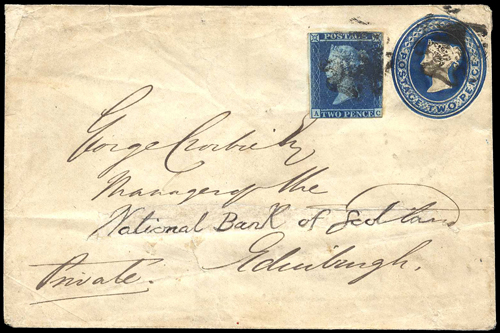 POSTAGE
A TWO PENCE C
POSTAGE TWO PENCE
George
Manager of the
National Bank of Scotland
Edinburgh.
Private.